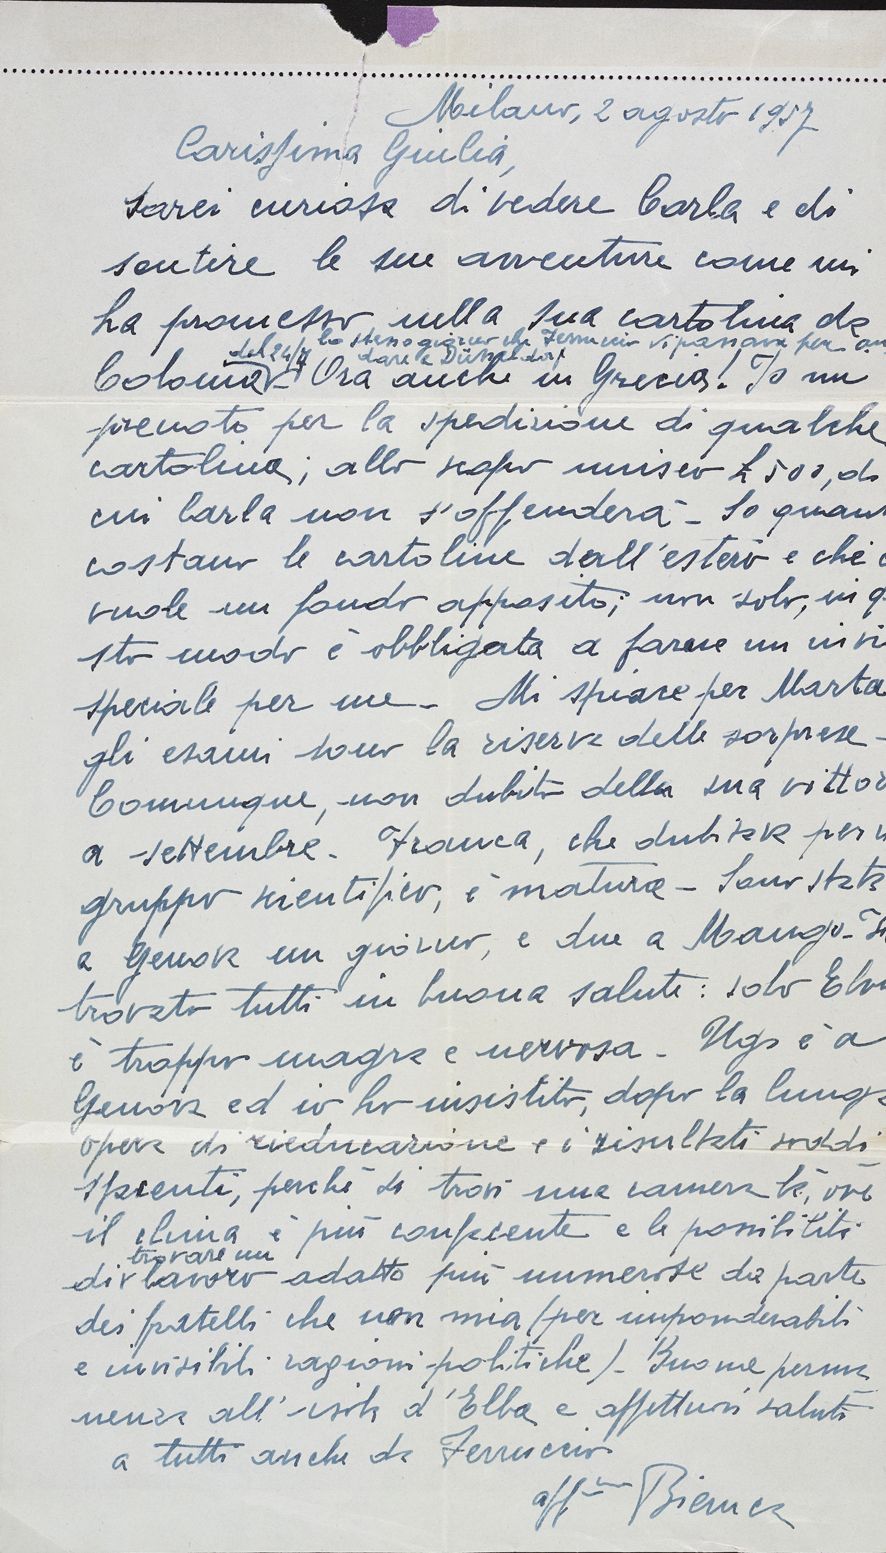 Milano, 2 agosto 1957
Carissima Giulia,
sarei curiosa di vedere Carla e di
sentire le sue avventure come mi
ha promesso nella sua cartolina da
del 24/7 lo stesso giorno che Ferruccio vi passava per an
dare a Düsseldorf
Colonia! Ora anche in Grecia! Io mi
prenoto per la spedizione di qualche
cartolina; allo scopo unisco £ 500, di
cui Carla non s'offenderà - So quan
costano le cartoline dall'estero e che c
vuole un fondo apposito; non solo, in q
sto modo è obbligata a farne un invi
speciale per me - Mi spiace per Marta
gli esami sono la riserva delle sorprese -
Comunque, non dubito della sua vittor
a settembre - Franca, che dubitava per
gruppo scientifico, è matura - Sono stata
a Genova un giorno, e due a Mango -
trovato tutti in buona salute: solo
è troppo magra e nervosa - Ugo è a
Genova ed io ho insistito, dopo la lunga
opera di rieducazione e i risultati soddi
sfacenti, perché si trovi una camera là, ove
il clima è più confacente e le possibilità
trovare un
di lavoro adatto più numerose da parte
dei fratelli che non mia (per imponderabili
e invisibili ragioni politiche) - Buona perma
nenza all'isola d'Elba e affettuosi saluti
a tutti anche da Ferruccio
aff.ma Bianca